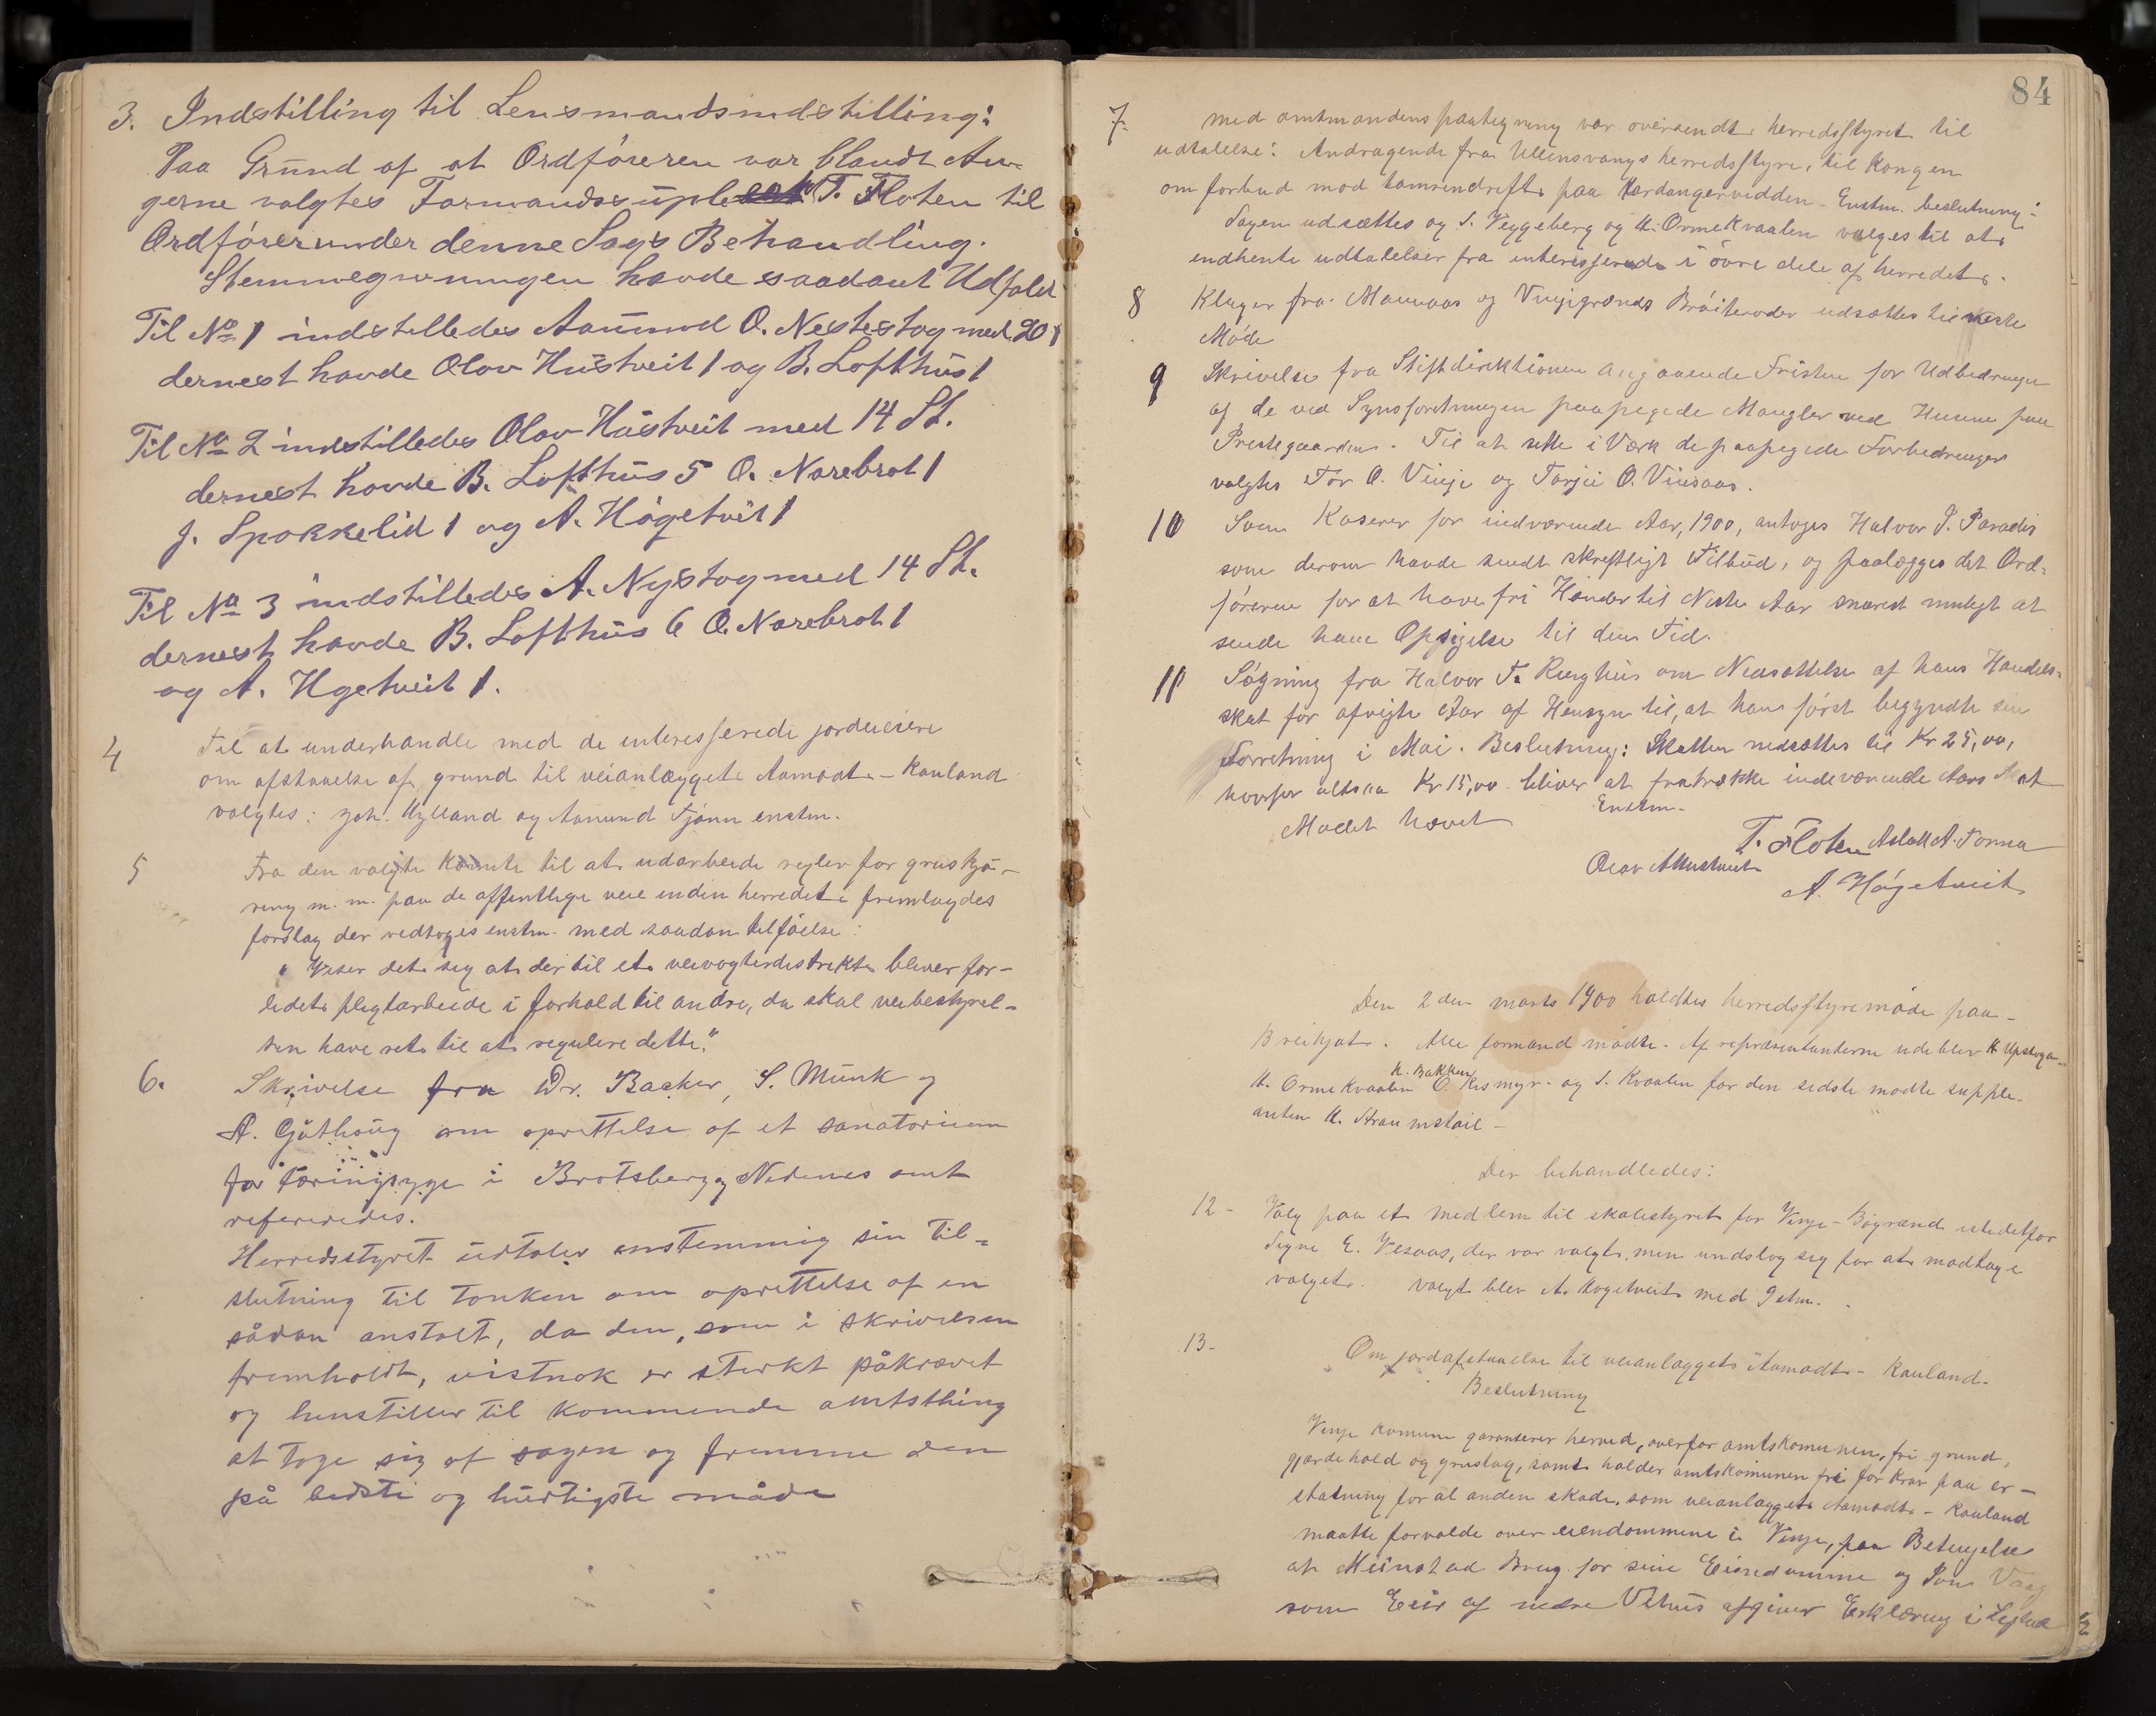 3. Indstilling til Lensmandsindstilling:
Paa Grund af at Ordføreren var blandt An-
gerne valgtes Formands T. Floten til
Ordfører under denne Sags Behandling.
Stemmegivningen havde saadant Udfald
Til No 1 indstilledes Aamund O. Nestestog med 20
dernest havde Olav Hustveit 1 og B. Lofthus 1
Til No 2 indstilledes Olav Hustveit med 14 St.
dernest havde B. Lofthus 5 O. Norebrot 1
J. Spokkelid 1 og A. Høgetveit 1
Til No 3 indstilledes A. Nystog med 14 St.
dernest havde B. Lofthus 6 O. Norebrot 1
og A. Hgetveit 1.
4 Til at underhandle med de interesserede jordeiere
om afstaaelse af grund til veianlægget Aamodt - Rauland
valgtes: Joh. Hylland og Aanund Tjønn enstm.
5 Fra den valgte Komite til at udarbeide regler for gruskjø-
ring m. m. paa de offentlige veie inden herredet fremlagdes
forslag der vedtoges enstm. med saadan tilføielse:
"Viser det sig at der til et veivogterdistrikt bliver for-
lidet pligtarbeide i forhold til andre, da skal veibestyrel-
sen have ret til at regulere dette."
6. Skrivelse fra Dr. Backer, S. Munk og
A. Gåthoug om oprettelse af et sanatorium
for tæringssyge i Bratsberg og Nedenes amt
refereredes.
Herredsstyret udtaler enstemmig sin til-
slutning til tanken om oprettelse af en
sådan anstalt, da den, som i skrivelsen
fremholdt, vistnok er sterkt påkrævet
og henstiller til kommende amtsthing
at tage sig af sagen og fremme den
på bedste og hurtigste måde
84
7. med amtmandens paategning var oversendt herredsstyret til
udtalelse: Andragende fra Ullensvangs herredsstyre, til Kongen
om forbud mod tamrendrift paa Hardangervidden - Enstm. beslutning:
Sagen udsættes og S. Veggeberg og H. Ormekvaalen vælges til at
indhente udtalelser fra interesserede i øvre dele af herredet.
8 Klager fra Mannaas og Vinjegrends Brøiteroder udsættes til neste
Møde
9 Skrivelse fra Stiftdirektionen angaaende Fristen for Udbedringen
af de ved Synsforetningen paapegede Mangler ved Husene paa
Prestegaarden. Til at sette i Værk de paapegede Forbedringer
valgtes Tor O. Vinje og Torjii O. Vinsaas.
10 Som Kaserer for indværende Aar, 1900, antoges Halvor T. Paradis
som derom havde sendt skreftligt Tilbud, og paalægges det Ord-
føreren for at have fri Hænder til Neste Aar snarest muligt at
sende ham Opsigelse til den Tid.
11 Søgning fra Halvor T. Rughus om Nedsættelse af hans Handels-
skat for afvigte Aar af Hensyn til, at han først begyndte sin
Forretning i Mai. Beslutning: Skatten nedsættes til Kr 25,00,
hvorfor altsaa Kr 15,00 bliver at fratrække indeværende Aars Skat
Enstm.
Mødet hævet
T. Floten Aslak A. Tonna
Olav A Hustveit
A. Høgetveit
Den 2den marts 1900 holdtes herredsstyremøde paa
Breiljot. Alle formænd mødte. Af repræsentanterne udeblev
H. Ormekvaalen K. Bakken O. Kosmyr og S. Kvaalen for den sidste mødte supple-
anten H. Straumstøil -
Der behandledes:
12 - Valg paa et medlem til skolestyret for Vinje - Bøgrænd istedetfor
Signe E. Vesaas, der var valgt, men undslog sig for at modtage
valget. Valgt blev A. Høgetveit med 9 stm.
13 - Om jordafstaaelse til veianlægget Aamodt - Rauland -
Beslutning
Vinje Komune garanterer herved, overfor amtskomunen, fri grund,
gjærdehold og grustag, samt holder amtskomunen fri for krav paa er-
statning for al anden skade, som veianlægget Aamodt - Rauland
maatte forvolde over eiendommene i Vinje, paa Betingelse
at Meinstad Brug for sine Eiendomme og Jon Vaag
som Eier af nedre Vehus afgiver Erklæring i